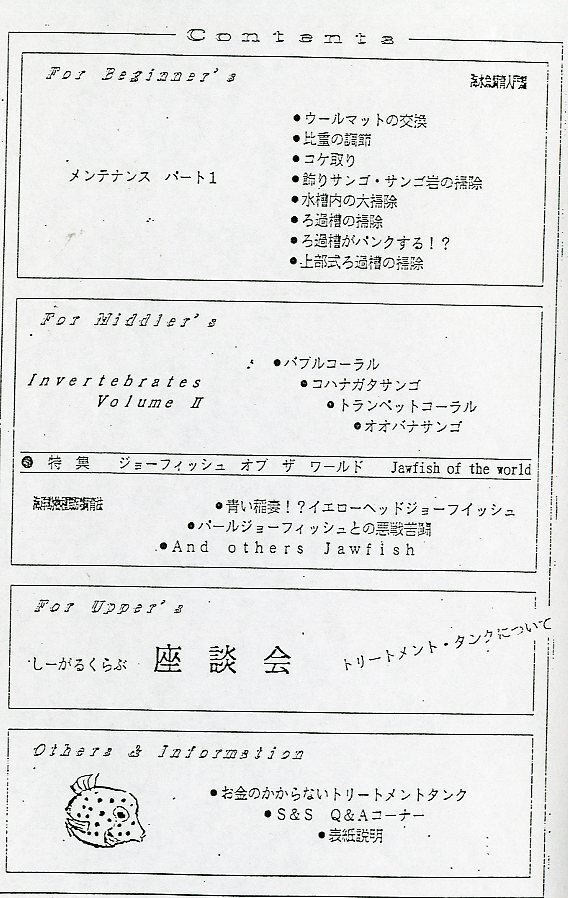 Contents
For Beginner's
メンテナンス パート1
●ウールマットの交換
●比重の調節
●コケ取り
●飾りサンゴ・サンゴ岩の掃除
●水槽内の大掃除
●ろ過槽の掃除
●ろ過槽がパンクする!?
●上部式ろ過槽の掃除
For Middler's
Invertebrates
Volume Ⅱ
●バブルコーラル
●コハナガタサンゴ
●トランペットコーラル
●オオバナサンゴ
特集 ジョーフィッシュ オブ ザ ワールド Jawfish of the world
●青い稲妻!?イエローヘッドジョーフイッシュ
●パールジョーフィッシュとの悪戦苦闘
●And others Jawfish
For Upper's
しーがるくらぶ 座談会
トリートメント・タンクについて
Others & Information
●お金のかからないトリートメントタンク
●S&S Q&Aコーナー
●表紙説明